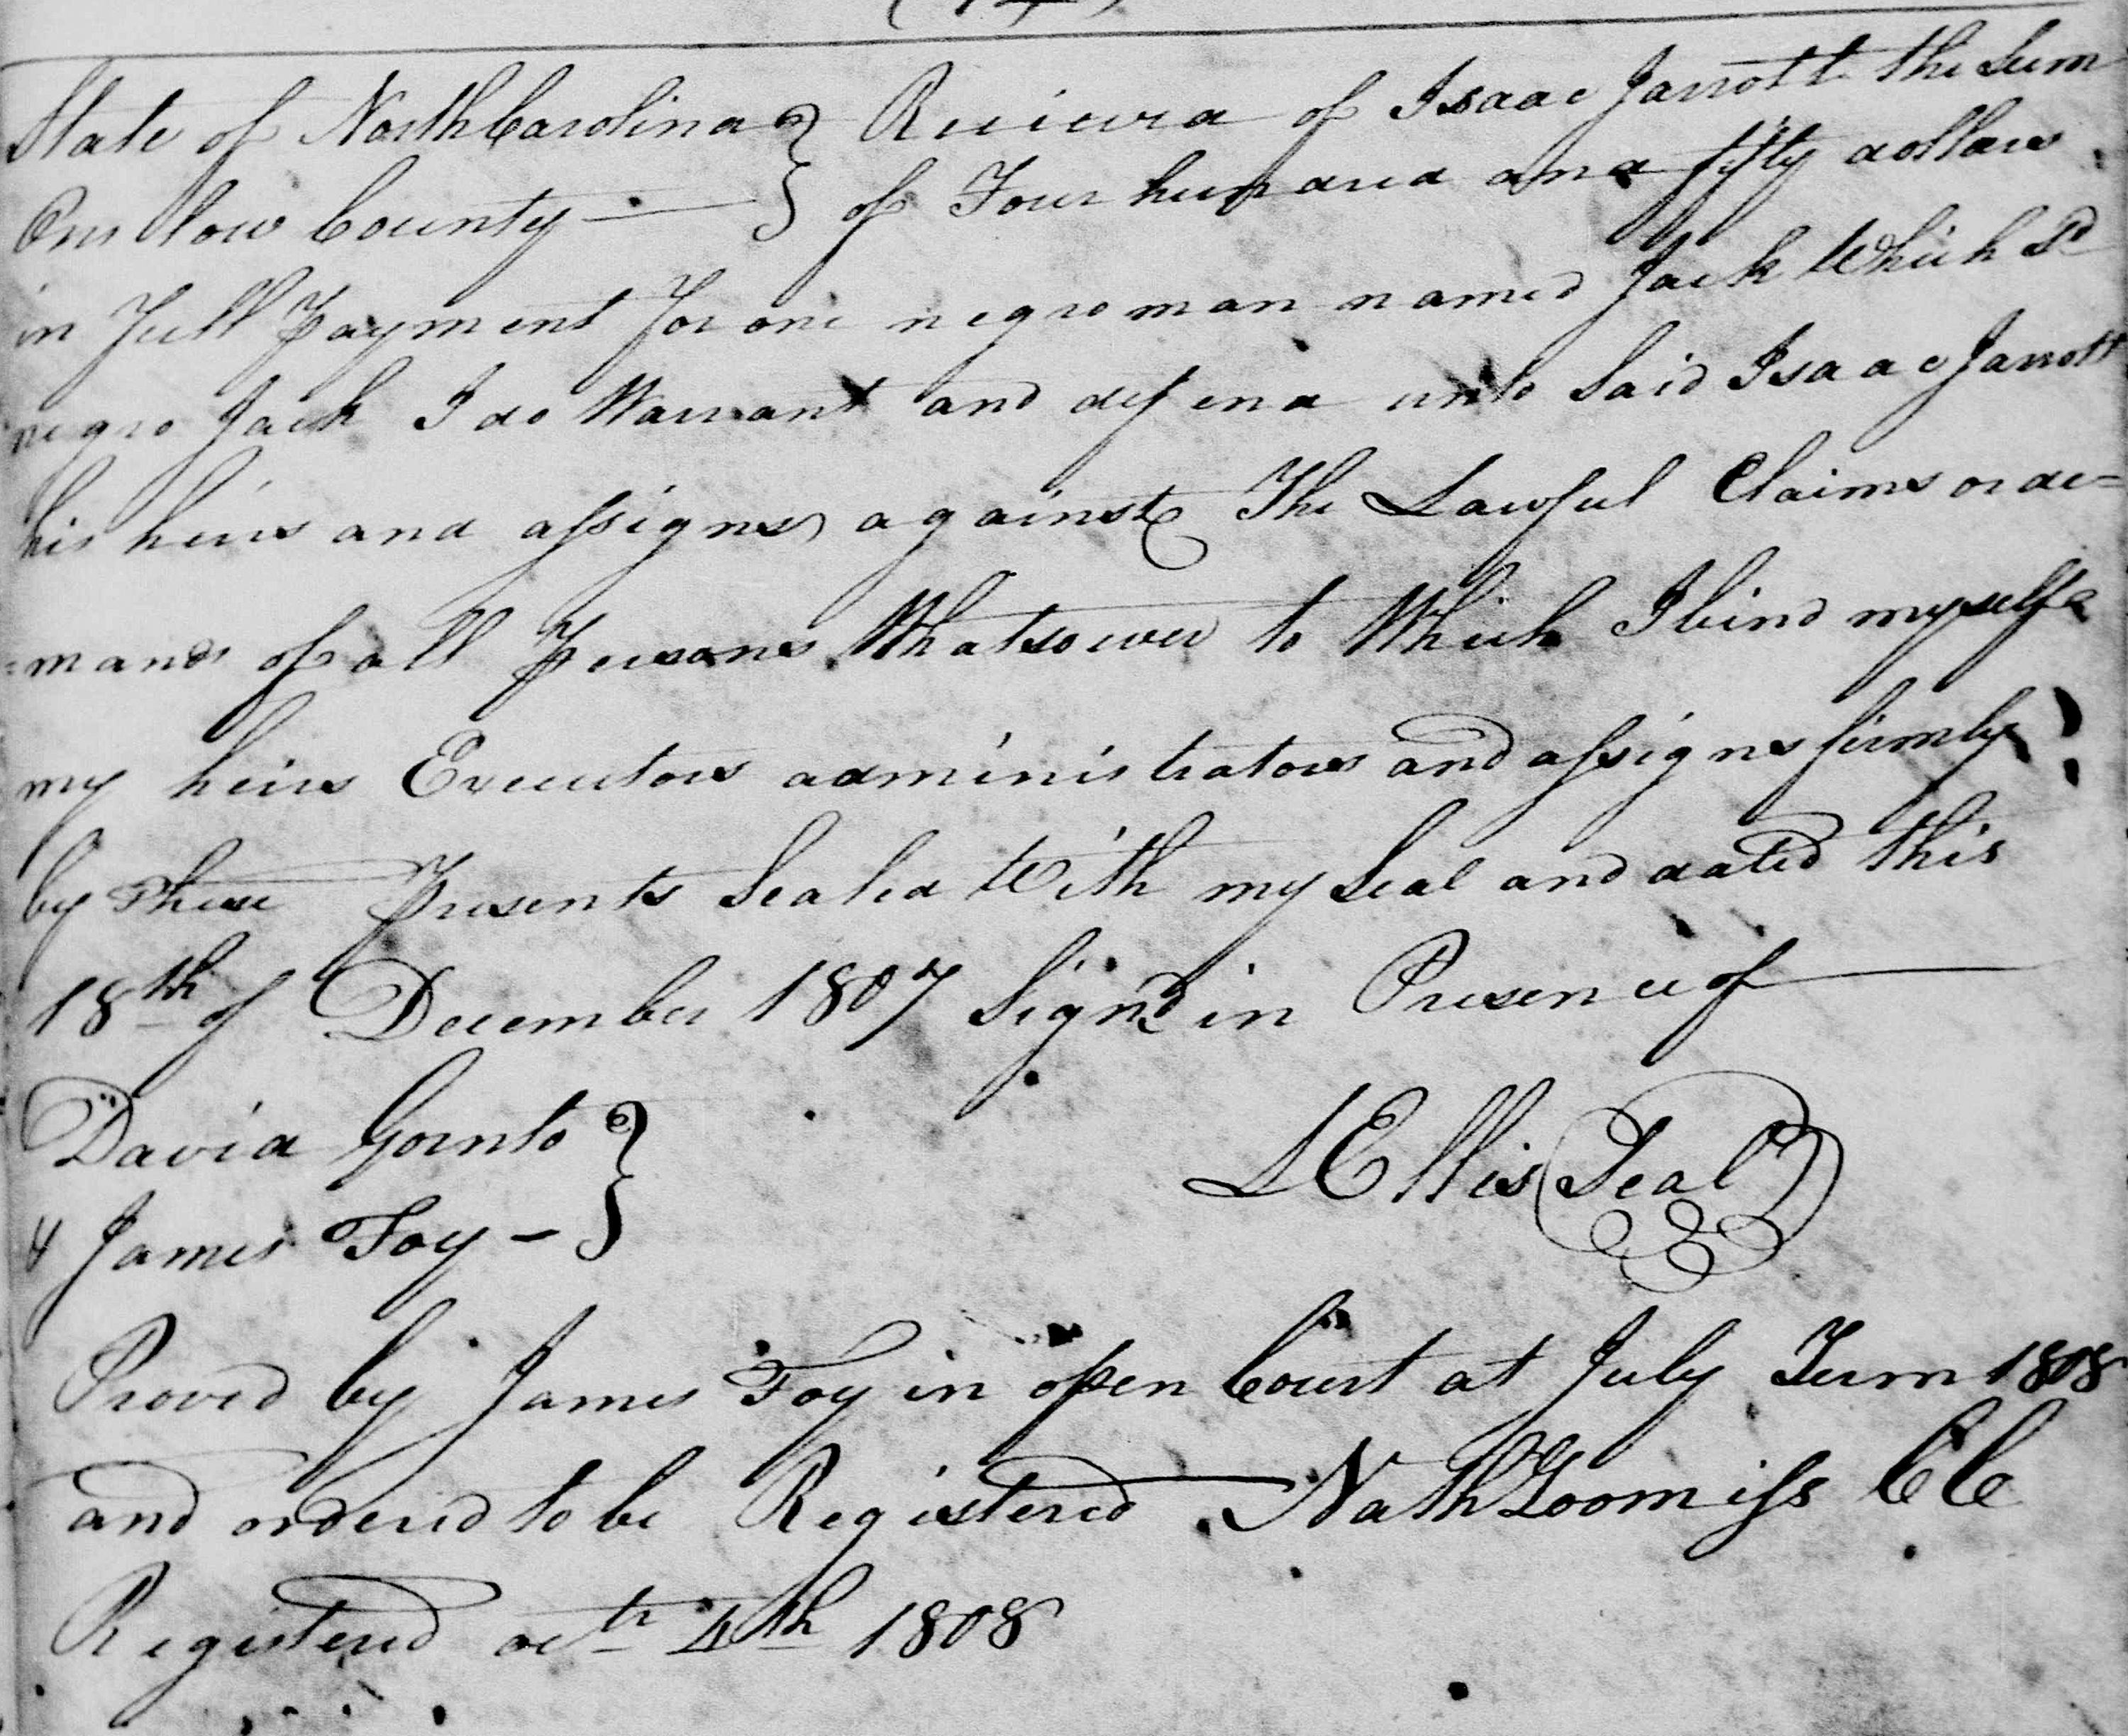 State of North Carolina } Received of Isaac Jarrott the Sum
Onslow County — } of Four hundred and fifty dollars
in Full Payment for one negro man named Jack Which Sd
negro Jack I do Warrant and defend unto Said Isaac Jarrott
his heirs and assigns against The Lawful Claims or de=
=mands of all Persons Whatsoever to Which I bind myself
my heirs Executors administrators and assigns firmly
by These Presents Sealed With my Seal and dated this
18th of December 1807 Signd in Presence of
David Gornto }
& James Foy - } L Ellis (Seal)
Proved by James Foy in open Court at July Term 1808
and ordered to be Registered Nath Loomiss CC
Registered octr 4th 1808